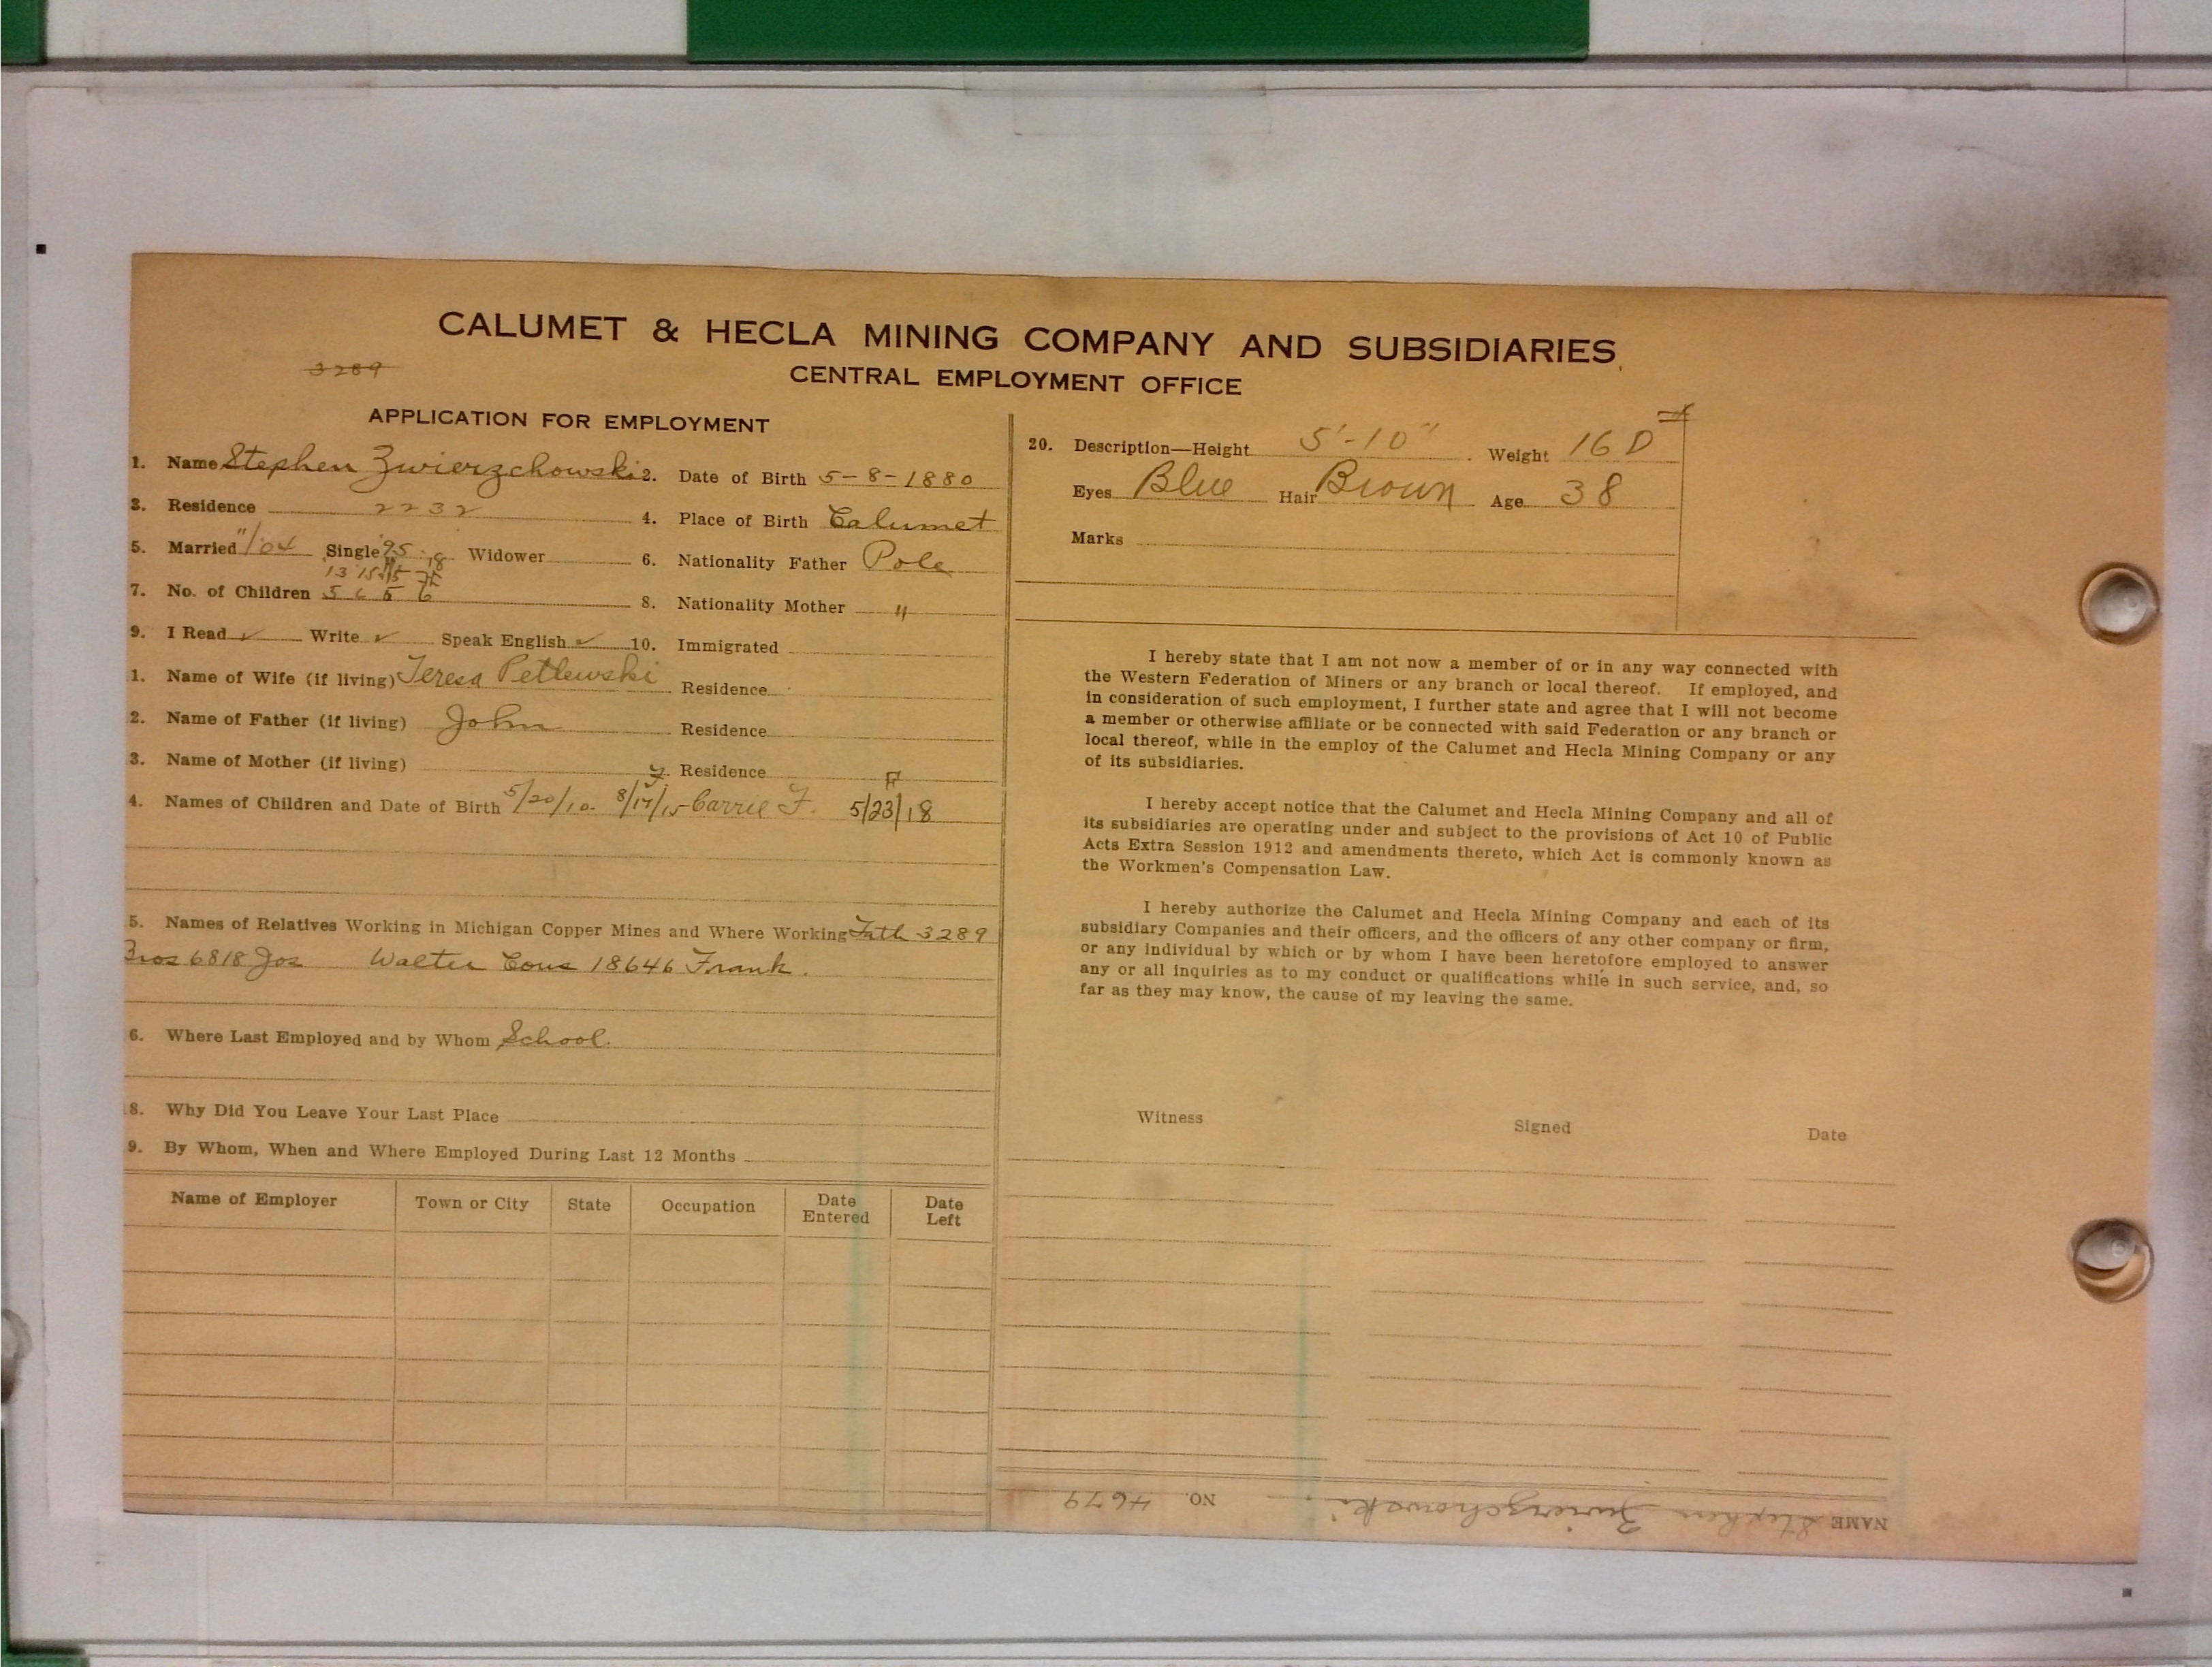 CALUMET & HECLA MINING COMPANY AND SUBSIDIARIES
CENTRAL EMPLOYMENT OFFICE
3289
APPLICATION FOR EMPLOYMENT
1. Name Stephen Zwierzchowski 2. Date of Birth 5-8-1880
3. Residence 2232 4. Place of Birth Calumet
5. Married "/04 Single 95 18 Widower 6. Nationality Father Pole
13 15
7. No. of Children 5 6 5 6 8. Nationality Mother "
9. I Read ✓ Write ✓ Speak English ✓ 10. Immigrated
1. Name of Wife (if living) Teresa Petlewski Residence
2. Name of Father (if living) John Residence
3. Name of Mother (if living) Residence
F
4. Names of Children and Date of Birth 5/20/10. 8/17/15 Carrie F. 5/23/18
5. Names of Relatives Working in Michigan Copper Mines and Where Working Fath 3289
Bros 6818 Jos Walter Cous 18646 Frank.
6. Where Last Employed and by Whom School.
18. Why Did You Leave Your Last Place
9. By Whom, When and Where Employed During Last 12 Months
Name of Employer Town or City State Occupation Date Entered Date Left
20. Description—Height 5'-10" . Weight 160
Eyes Blue Hair Brown Age 38
Marks
I hereby state that I am not now a member of or in any way connected with
the Western Federation of Miners or any branch or local thereof. If employed, and
in consideration of such employment, I further state and agree that I will not become
a member or otherwise affiliate or be connected with said Federation or any branch or
local thereof, while in the employ of the Calumet and Hecla Mining Company or any
of its subsidiaries.
I hereby accept notice that the Calumet and Hecla Mining Company and all of
its subsidiaries are operating under and subject to the provisions of Act 10 of Public
Acts Extra Session 1912 and amendments thereto, which Act is commonly known as
the Workmen's Compensation Law.
I hereby authorize the Calumet and Hecla Mining Company and each of its
subsidiary Companies and their officers, and the officers of any other company or firm,
or any individual by which or by whom I have been heretofore employed to answer
any or all inquiries as to my conduct or qualifications while in such service, and, so
far as they may know, the cause of my leaving the same.
Witness Signed Date
NAME Stephen Zwierzchowski NO. 4679